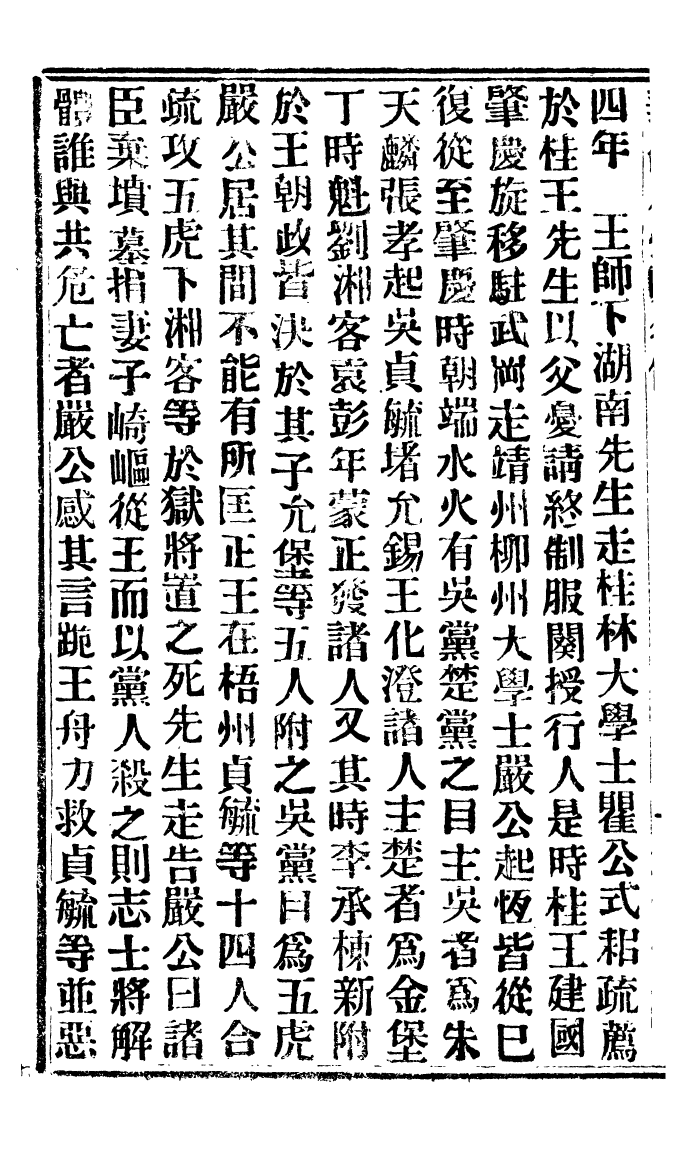 四年　王師下湖南先生走桂林大學士瞿公式耜疏薦
於桂王先生以父憂請終制服闋授行人是時桂王建國
肇慶旋移駐武岡走靖州柳州大學士嚴公起恆皆從已
復從至肇慶時朝端水火有吳黨楚黨之目主吳者爲朱
天麟張孝起吳貞毓堵允錫王化澄諸人主楚者爲金堡
丁時魁劉湘客袁彭年蒙正發諸人又其時李承棟新附
於王朝政皆決於其子允堡等五人附之吳黨目爲五虎
嚴公居其間不能有所匡正王在梧州貞毓等十四人合
疏攻五虎下湘客等於獄將置之死先生走告嚴公曰諸
臣棄墳墓捐妻子崎嶇從王而以黨人殺之則志士將解
體誰與共危亡者嚴公感其言跪王舟力救貞毓等並惡